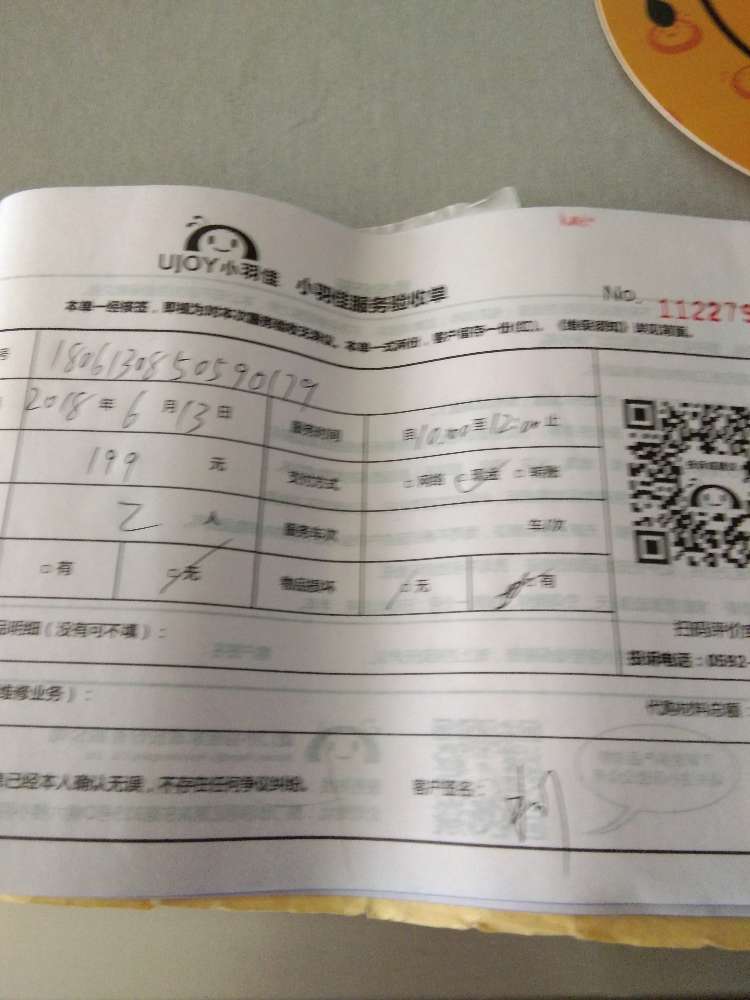 UJOY小羽佳 小羽佳服务验收单
No. 112279
本单一经接签，即视为对本次服务验收无争议。本单一式两份，客户留存一份(红)。《维保须知》详见背面。
号 180613085059017９
2018 年 6 月 13 日 服务时间 10:00 至 12:00 止
199 元 支付方式 □网络 □现金 □转账
2 人 服务车次 车/次
□有 □无 物品损坏 □无 □有
品明细（没有可不填）：
扫码评价
投诉电话：0592-
维修业务）：
代购材料总额：
已经本人确认无误，不存在任何争议纠纷。 客户签名：